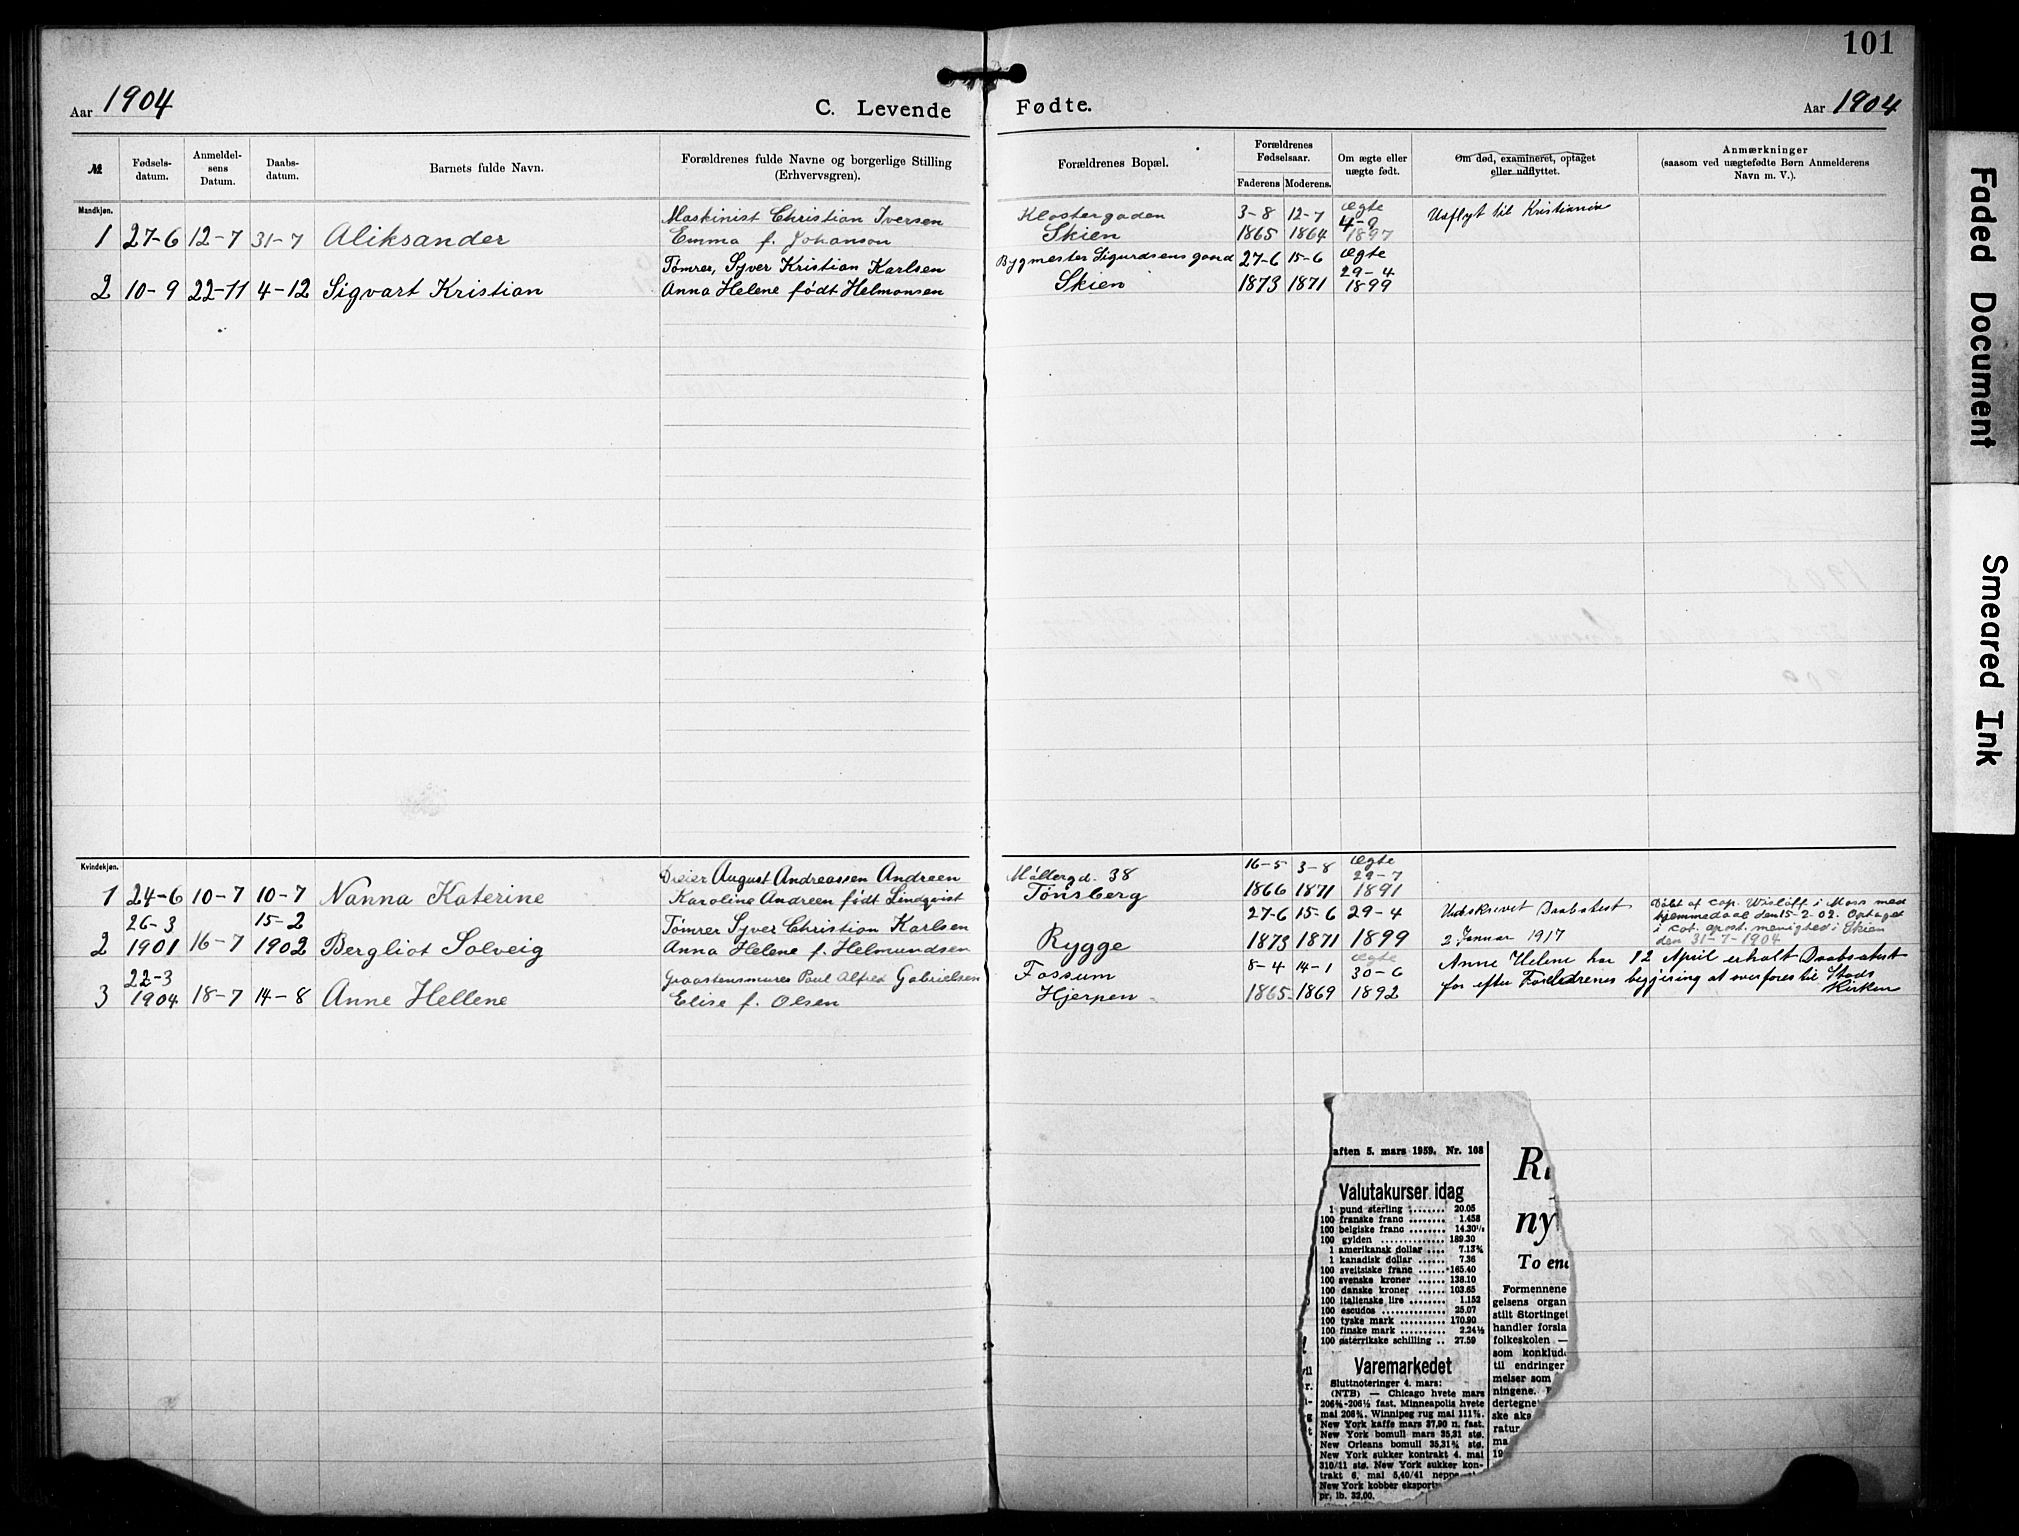 101
Aar 1904
C. Levende Fødte.
Aar 1904
№
Fødsels-datum.
Anmeldel-sens Datum.
Daabs-datum.
Barnets fulde Navn.
Forældrenes fulde Navne og borgerlige Stilling
(Erhvervsgren).
Forældrenes Bopæl.
Forældrenes Fødselsaar.
Faderens Moderens.
Om ægte eller uægte født.
Om død, examineret, optaget
eller udflyttet.
Anmærkninger
(saasom ved uægtefødte Børn Anmelderens
Navn m. V.).
Mandkjøn.
Maskinist Christian Iversen Klostergaden 3-8 12-7 ægte 4-9 Udflyt til Kristiania
1 27-6 12-7 31-7 Aliksander Emma f. Johanson Skien 1865 1864 1897
Tømrer, Syver Kristian Karlsen Bygmester Sigurdsens gaard 27-6 15-6 ægte 29-4
2 10-9 22-11 4-12 Sigvart Kristian Anna Helene født Helmonsen Skien 1873 1871 1899
Kvindekjøn.
Dreier August Andreassen Andreen Møllergd. 38 16-5 3-8 ægte 29-7
1 24-6 10-7 10-7 Nanna Katerine Karoline Andreen født Lindqvist Tønsberg 1866 1871 1891
26-3 15-2 Tømrer Syver Christian Karlsen 27-6 15-6 29-4 Udskrevet Daabsatest
2 1901 16-7 1902 Bergliot Solveig Anna Helene f. Helmundsen Rygge 1873 1871 1899 2 Januar 1917
Døbt af cap. Wisløff i Moss med
hjemmedaab den 15-2-02. Optaget
i kat. apost. menighed i Skien
den 31-7-1904
22-3 Graastensmurer Paul Alfred Gabrielsen Fossum 8-4 14-1 ægte 30-6 Anne Helene har 12 April erholt Daabsatest
3 1904 18-7 14-8 Anne Hellene Elise f. Olsen Hjerpen 1865 1869 1892 for efter Foreldrenes begjering at overføres til Stads
Kirken
aften 5. mars 1959. Nr. 108
Valutakurser idag
1 pund sterling ........ 20.05
100 franske franc ........ 1.458
100 belgiske franc ........ 14.30½
100 gylden .............. 189.30
1 amerikansk dollar .... 7.13¾
1 kanadisk dollar ...... 7.36
100 sveitsiske franc ...... 165.40
100 svenske kroner ...... 138.10
100 danske kroner ...... 103.65
100 italienske lire ........ 1.152
100 escudos .............. 25.07
100 tyske mark .......... 170.90
100 finske mark .......... 2.24½
100 østerrikske schilling .. 27.59
Varemarkedet
Sluttnoteringer 4. mars:
(NTB) — Chicago hvete mars
206¾-206½ fast. Minneapolis hvete
mai 208¾. Winnipeg rug mai 111⅞.
New York kaffe mars 37,90 n. fast.
New York bomull mars 35,31 stø.
New Orleans bomull 35,31¾ stø.
New York sukker kontrakt 4. mai
310/11 stø. New York sukker kon-
trakt 6. mai 5,40/41 neppe
New York kobber eksport
pr. lb. 32,00.
ny
To en
Formennene
gelsens organ
stilt Stortinget
handler forsla
folkeskolen —
som konklud
til endringer
melser som
ningene.
dertegne
ske aks
ratur
ma
19
Faded Document
Smeared Ink